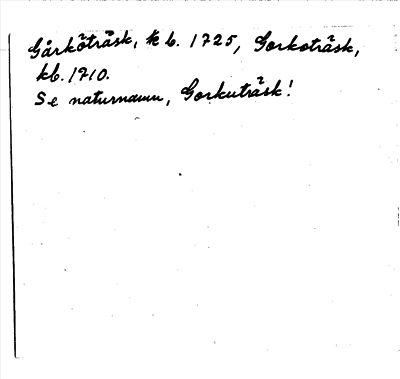 Gårkötråsk, kb. 1725, Gorkotråsk,
kb. 1710.
Se naturnamn, Gorkuträsk!